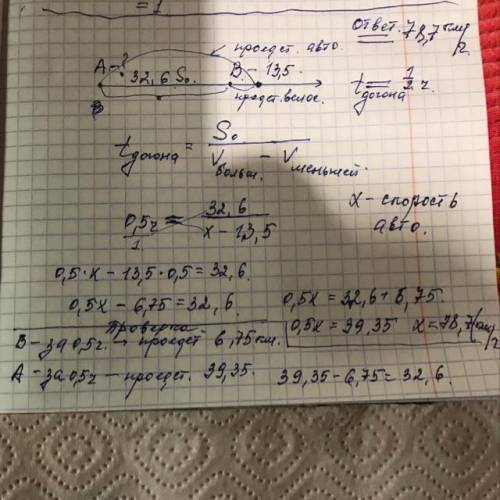 = 1
Ответ. 78,7 км/г
проедет. авто.
А - ? 32,6 S₀. В - 13,5.
В проедт. велос. t догона = 1/2 ч.
t догона = S₀ / V больш. - V меньшей.
0,5ч/1 = 32,6 / x - 13,5
x - спорость авто.
0,5·x - 13,5·0,5 = 32,6.
0,5x - 6,75 = 32,6. 0,5x = 32,6 + 6,75.
0,5x = 39,35 x = 78,7 км/г
Проверка
В - за 0,5ч. → проедет 6,75 км.
А - за 0,5ч - проедет. 39,35. 39,35 - 6,75 = 32,6.